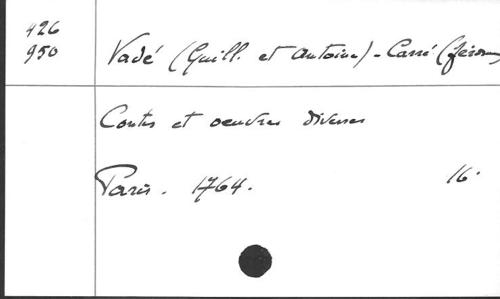 426
950 Vadé (Guill. et Antoine) - Carré (Jérome
Contes et oeuvres diverses
Paris. 1764. 16°